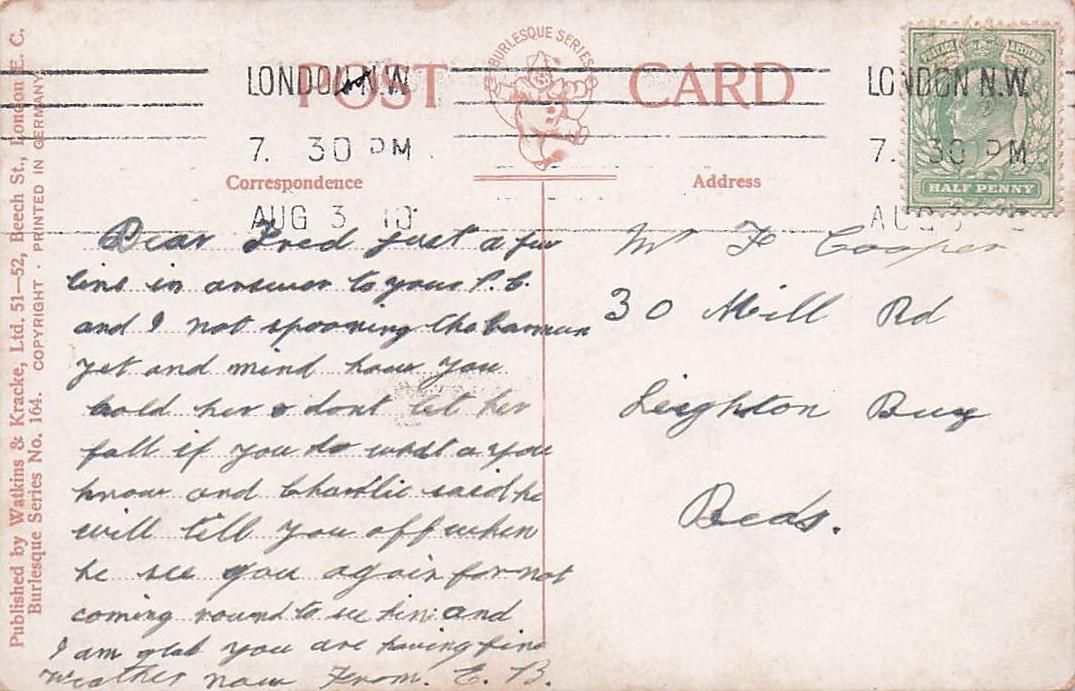 BURLESQUE SERIES
POST CARD
LONDON N.W.
7. 30 PM
AUG 3 10
LONDON N.W.
7. 30 PM
AUG 3 10
HALF PENNY
Correspondence
Address
Dear Fred just a few
line in answer to your P.C.
and I not spooning the barman
yet and mind how you
hold her & dont let her
fall if you do what a you
know and Charlie said he
will till you off when
he see you again for not
coming round to see him and
I am glad you are having fine
weather now From. E. B.
Mr F Cooper
30 Mill Rd
Leighton Buz
Beds.
Published by Watkins & Kracke, Ltd. 51—52, Beech St., London E. C,
Burlesque Series No. 164. COPYRIGHT · PRINTED IN GERMANY.